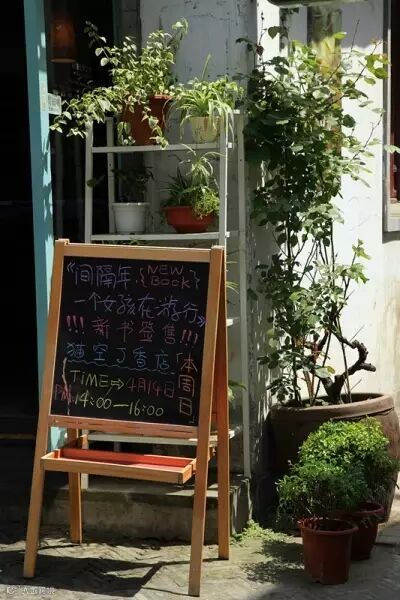 《间隔年.{NEW BOOK}
一个女孩在游行》
!!!新书签售!!!
猫空丁香店「本周日」
TiME⇒4月14日
PM 14:00—16:00